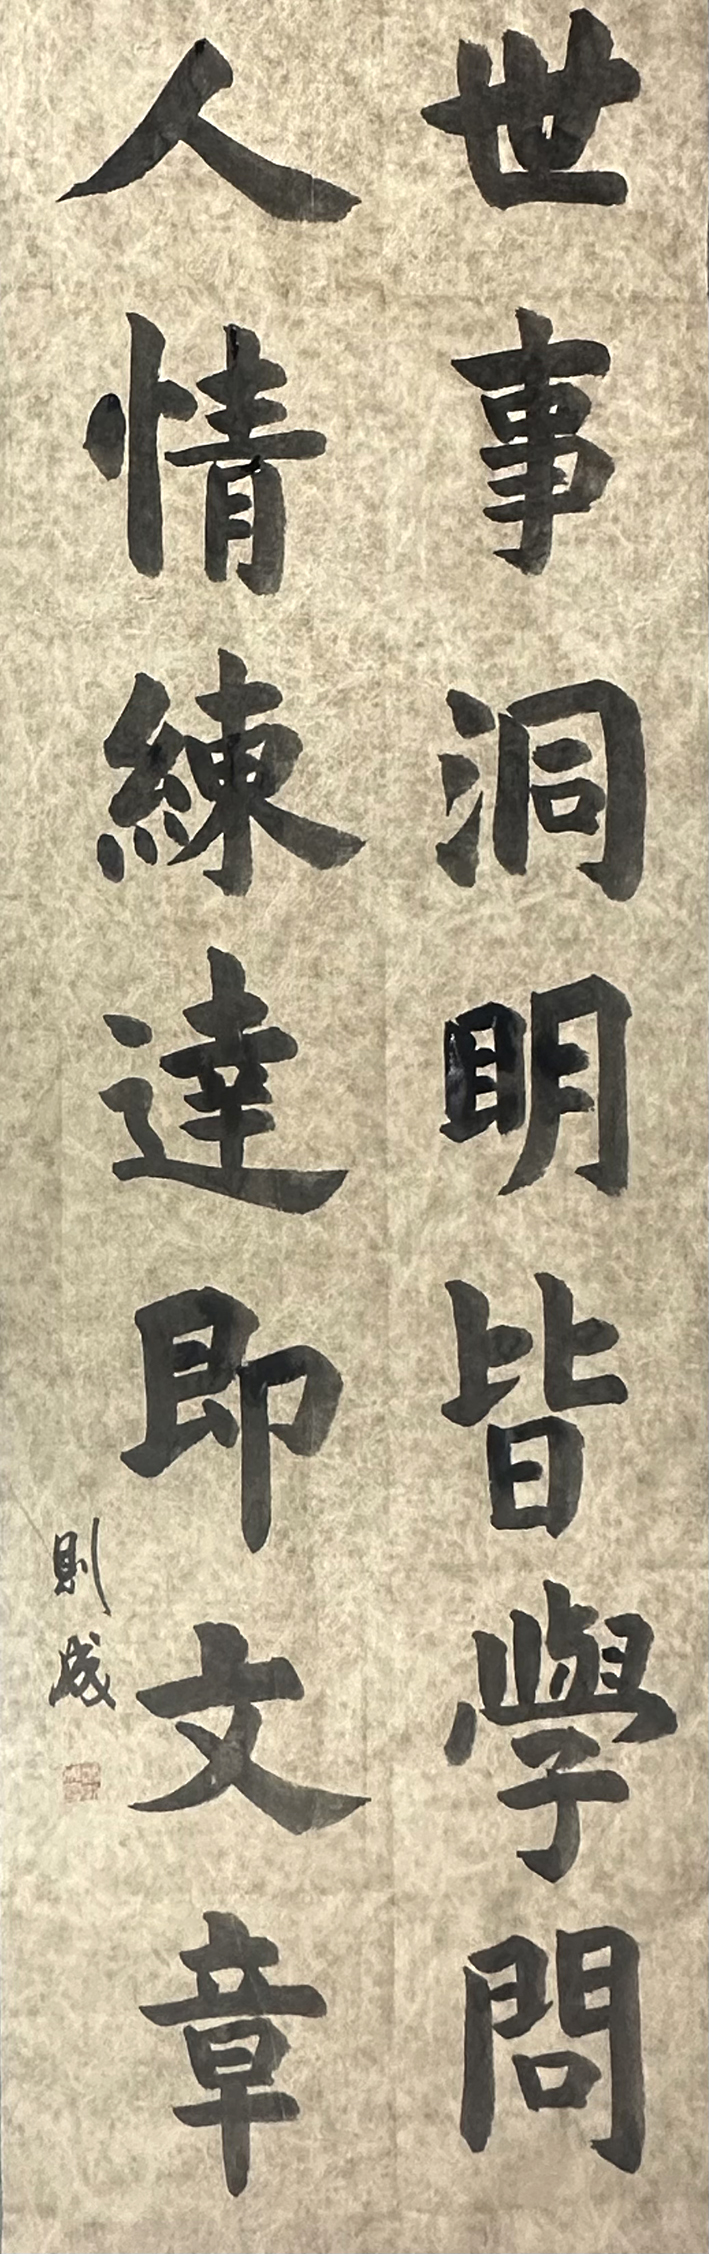 世事洞明皆學問
人情練達即文章
則成